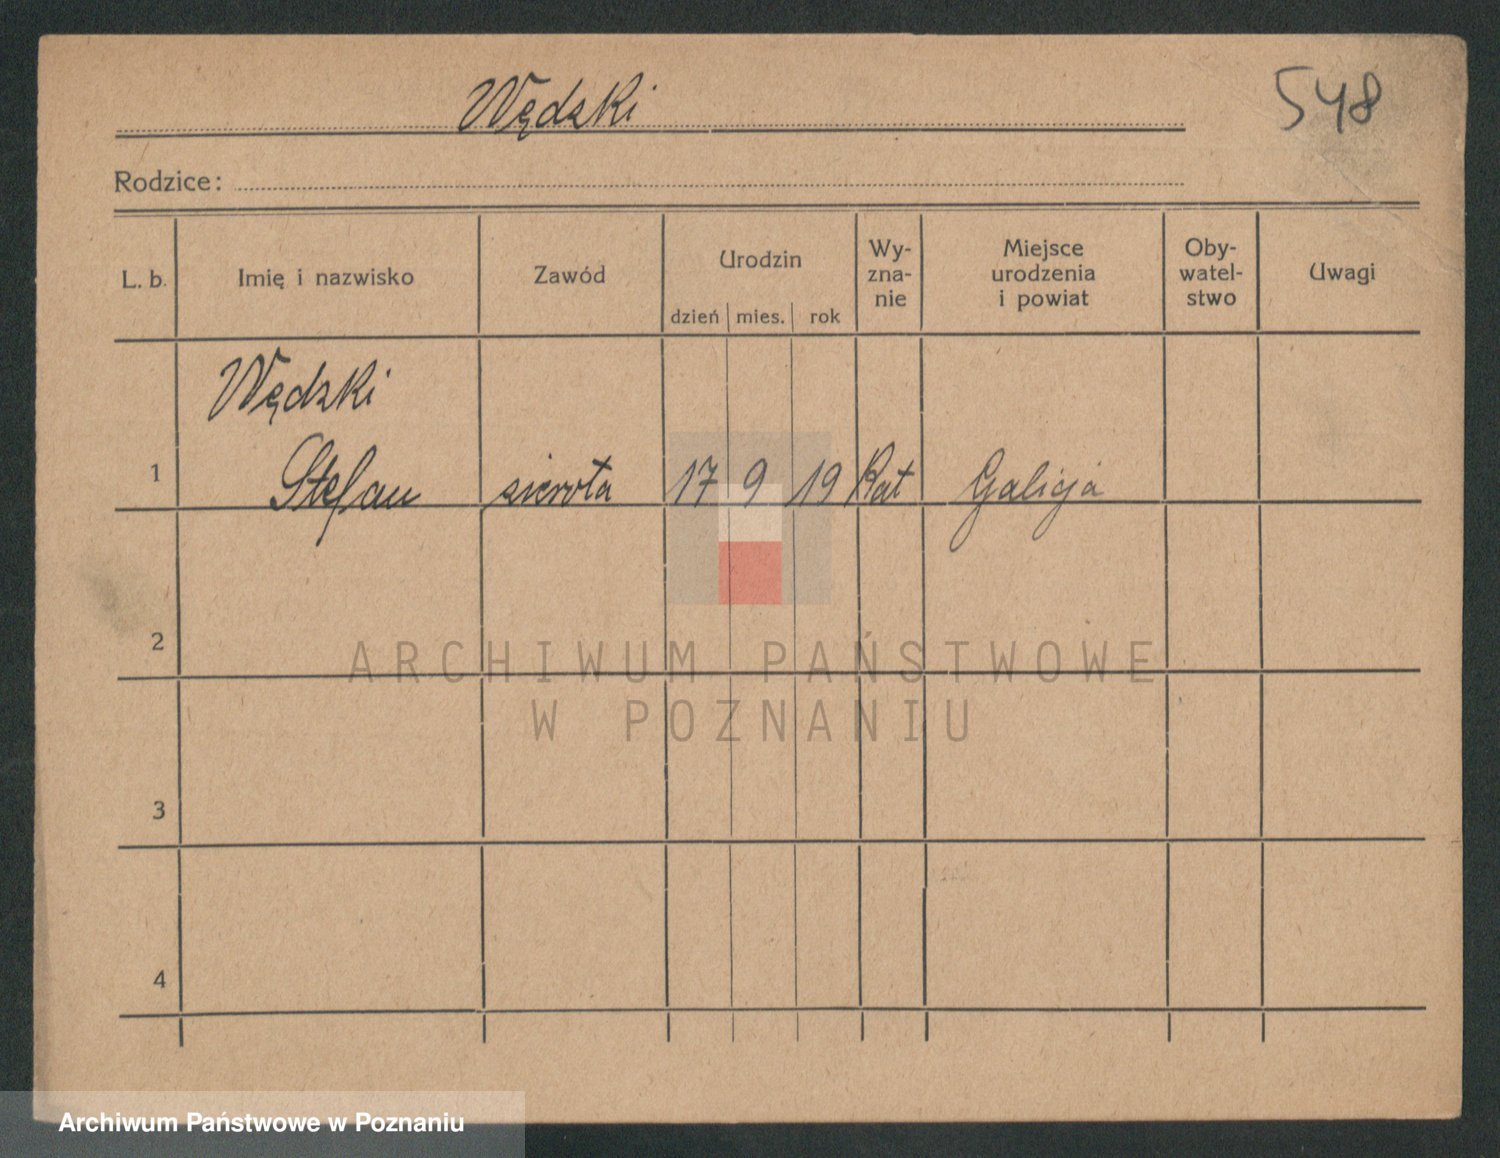 Wędzki
548
Rodzice:
L. b. Imię i nazwisko Zawód Urodzin dzień mies. rok Wy-zna-nie Miejsce urodzenia i powiat Oby-watel-stwo Uwagi
Wędzki
1 Stefan sierota 17 9 19 Kat Galicja
2
ARCHIWUM PAŃSTWOWE
W POZNANIU
3
4
Archiwum Państwowe w Poznaniu